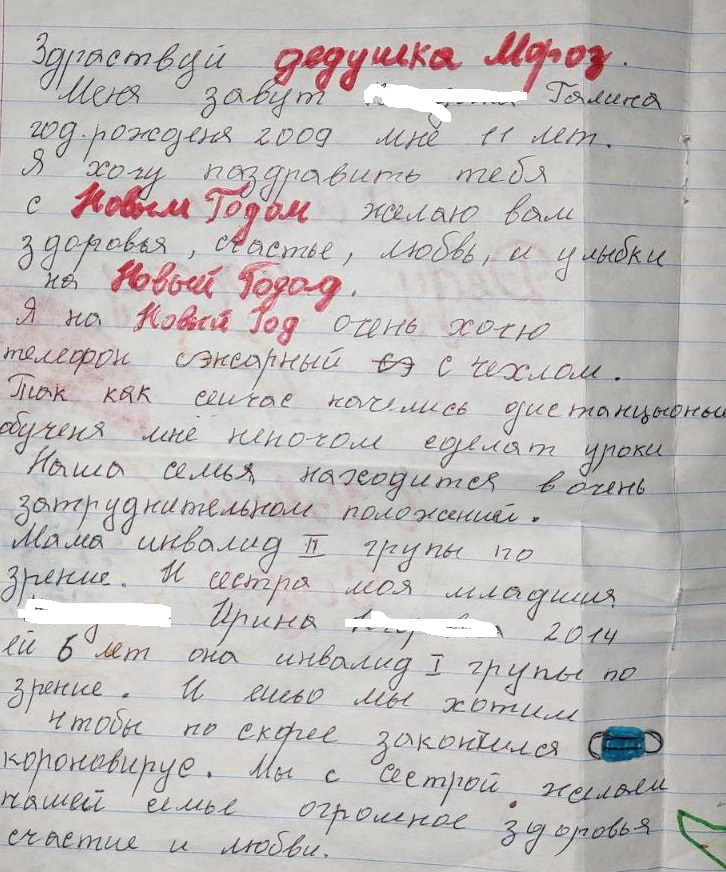 Здраствуй дедушка Мороз.
Меня завут Галина
год.рожденя 2009 мне 11 лет.
Я хочу паздравить тебя
с Новым Годом желаю вам
здоровья, счастье, любвь, и улыбки
на Новый Годад.
Я на Новый Год очень хочю
телефон сэнсарный с чехлом.
Так как сейчас начелись дистанцыоные
обученя мне непочом сделат уроки
Наша семья находится в очень
затруднительном положений.
Мама инвалид II групы по
зрение. И сестра моя младшия
Ирина 2014
ей 6 лет она инвалид I групы по
зрение. И ешьо мы хотим
чтобы по скорее закончился
короновирус. Мы с сестрой желаем
нашей семье огромное здоровья
счастие и любви.